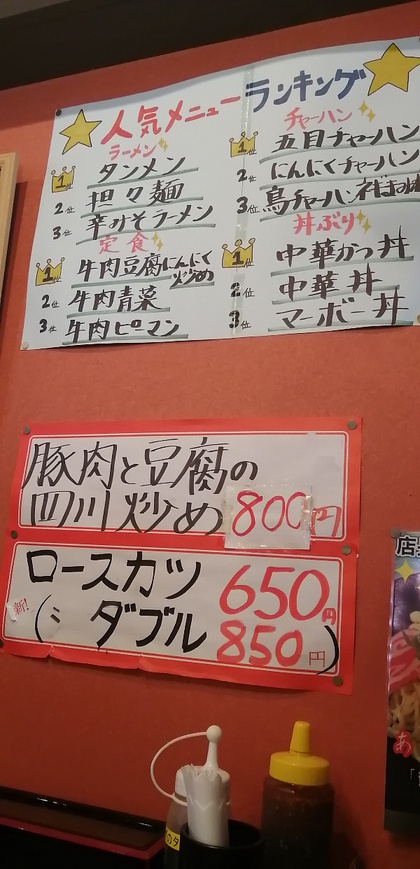 人気メニューランキング
ラーメン
1 タンメン
2位 担々麺
3位 辛みそラーメン
定食
1 牛肉豆腐にんにく炒め
2位 牛肉青菜
3位 牛肉ピーマン
チャーハン
1位 五目チャーハン
2位 にんにくチャーハン
3位 鳥チャーハン
丼ぶり
1位 中華かつ丼
2位 中華丼
3位 マーボー丼
豚肉と豆腐の
四川炒め 800円
ロースカツ 650円
新!
(〃 ダブル 850円)
店
あ